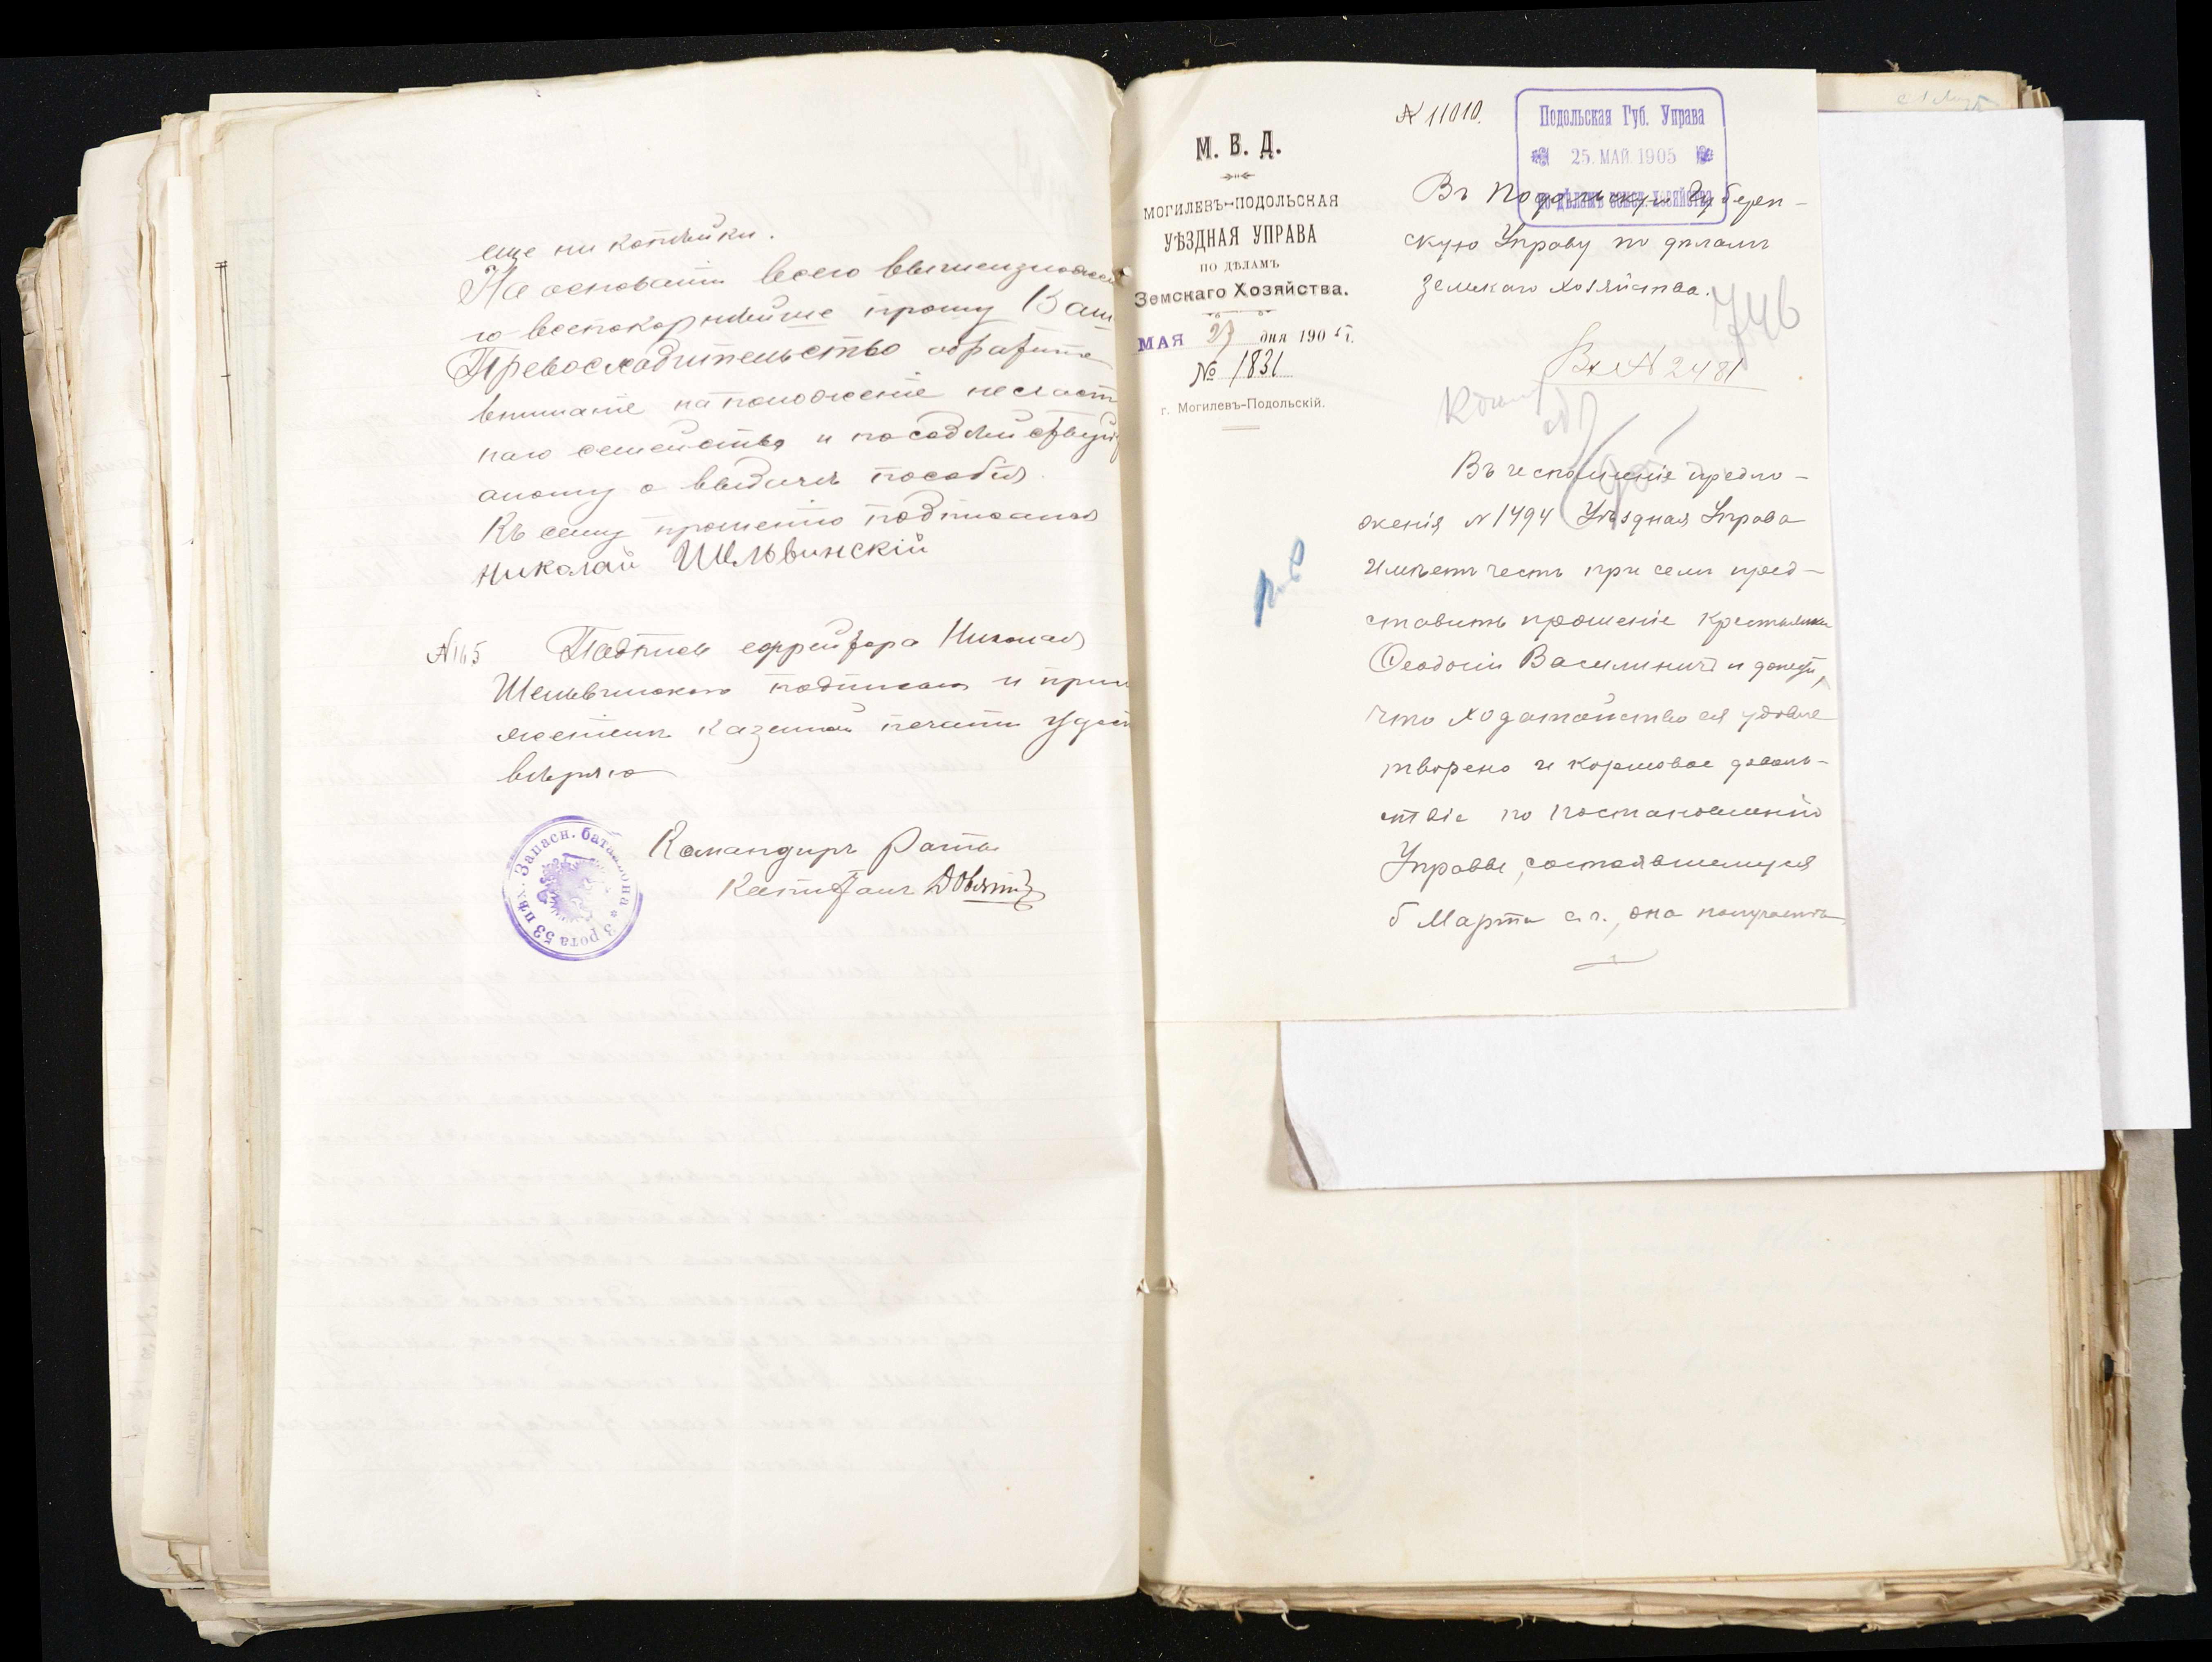 еще ни копѣйки.
На основаніи всего вышеизложен
го всепокорнѣйше прошу Ваш
Превосходительство обратить
вниманіе на положеніе несчаст
наго семейства и посодѣйствуй
оному о выдачѣ пособія.
Къ сему прошенію подписался
Николай Шельвинскій
№165 Подпись ефрейтора Николая
Шельвинскаго подписью и прил
женіемъ казенной печати удост
вѣряю
Командиръ Роты
Капитанъ
3 рота 53 пѣх. Запасн. баталіона
М. В. Д.
МОГИЛЕВЪ-ПОДОЛЬСКАЯ
УѢЗДНАЯ УПРАВА
ПО ДѢЛАМЪ
Земскаго Хозяйства.
МАЯ 27 дня 1905 г.
№ 1831
г. Могилевъ-Подольскій.
№ 11010.
Подольская Губ. Управа
25. МАЙ. 1905
по дѣламъ земск. хозяйства
Въ Подольскую Губерн-
скую Управу по дѣламъ
Земскаго Хозяйства.
746
Вх № 2481
Въ исполненіе предло-
женія № 1494 Уѣздная Управа
имѣетъ честь при семъ пред-
ставить прошеніе крестьянки
Ѳеодосіи Василинич и донести,
что ходатайство ея удовле
творено и кормовое доволь-
ствіе по постановленію
Управы, состоявшемуся
5 Марта с. г., она получаетъ.